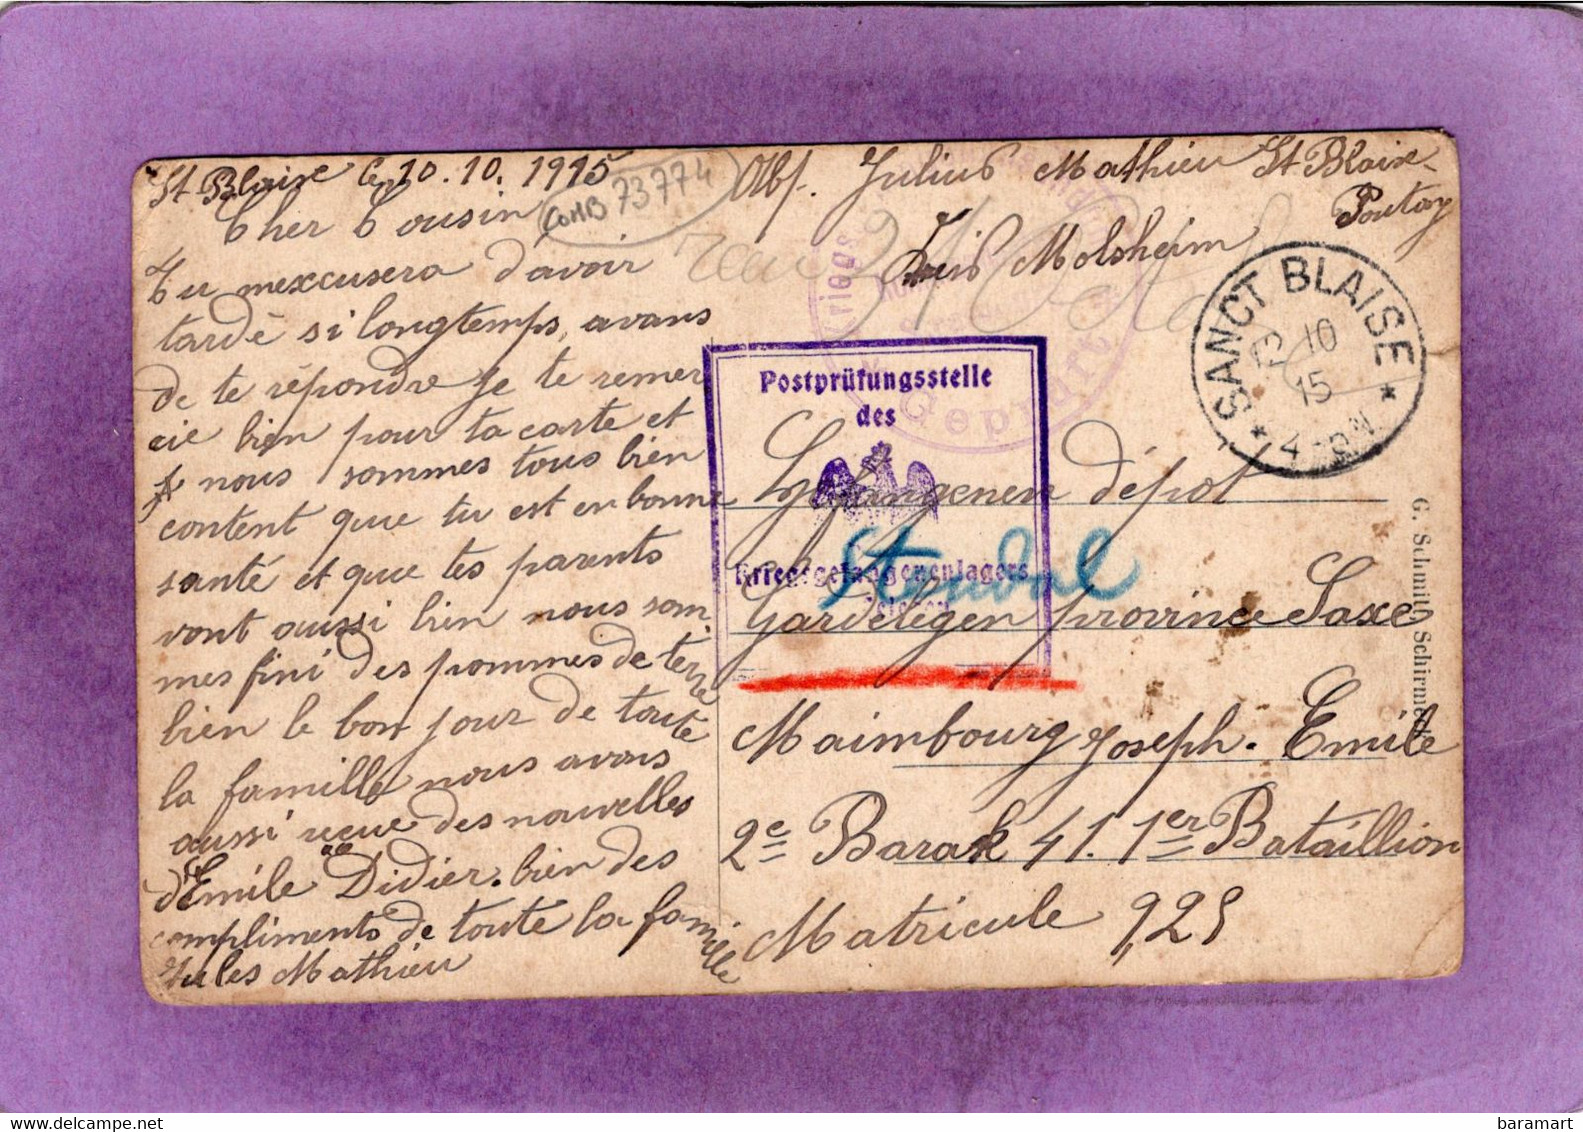 St Blaise le 10.10.1915
Cher Cousin
Tu mexcusera d'avoir
tardé si longtemps, avans
de te répondre je te remer
cie bien pour ta carte et
nous sommes tous bien
content que tu est en bonne
santé et que tes parents
vont aussi bien nous som
mes fini des pommes de terre
bien le bon jour de toute
la famille nous avons
aussi reçue des nouvelles
d'Emile Didier. bien des
compliments de toute la famille
Jules Mathieu
COMB 73774
Abs. Julius Mathieu St Blaise-
Poutay
Kreis Molsheim
SANCT BLAISE
12 10
15
* 4-5 N. *
Kriegs
Geprüft
Postprüfungsstelle
des
Kriegsgefangenenlagers
Gefangenen dépot
Stendal
Gardelegen province Saxe
Maimbourg Joseph. Emile
2e Barak 41. 1er Bataillion
Matricule 925
G. Schmitt, Schirmeck
baramart
www.delcampe.net